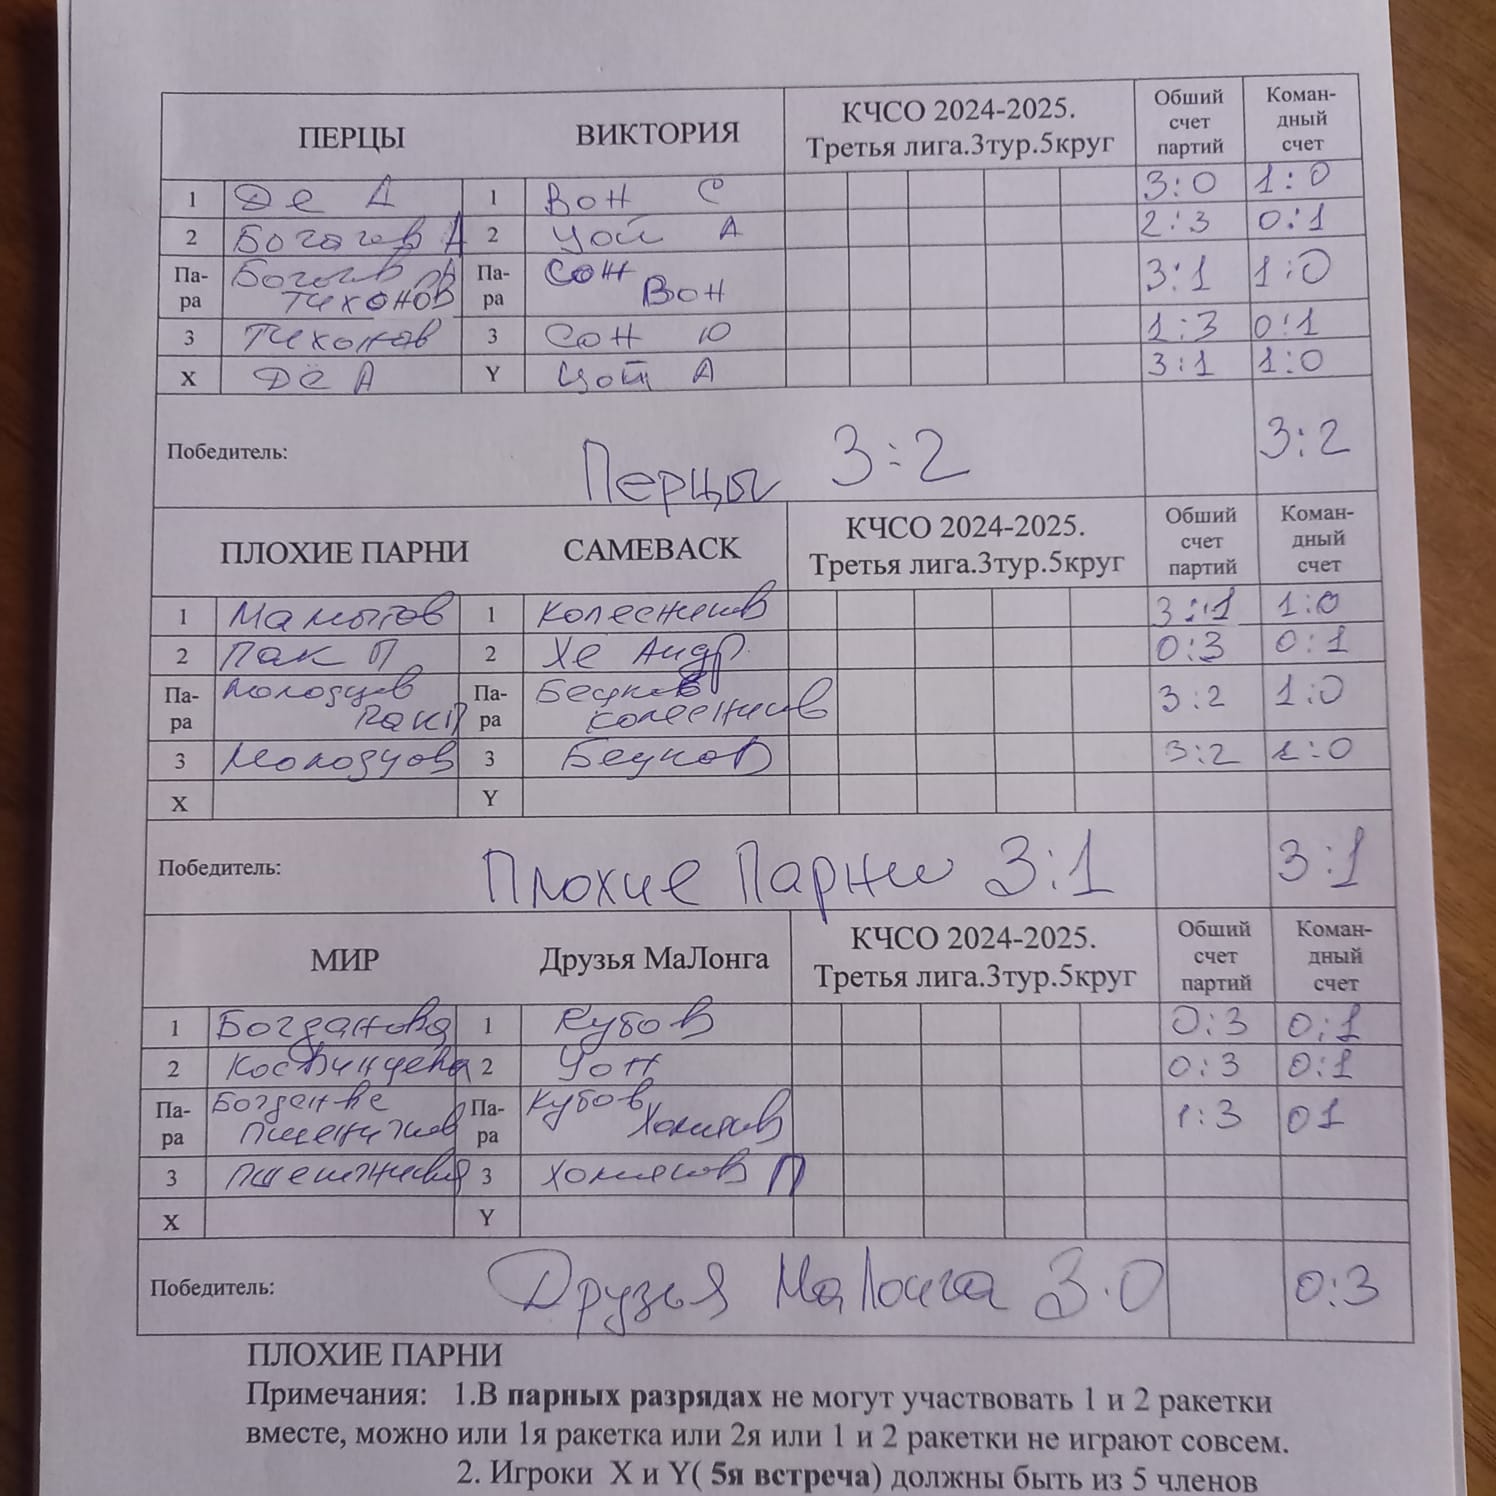 ПЕРЦЫ ВИКТОРИЯ КЧСО 2024-2025. Третья лига.3тур.5круг Обший счет партий Коман-дный счет
1 Де А 1 Вон С 3:0 1:0
2 Богачев А 2 Цой А 2:3 0:1
Па-ра Тихонов Па-ра Сон Вон 3:1 1:0
3 Тихонов 3 Сон Ю 1:3 0:1
X Дё А Y Цой А 3:1 1:0
Победитель: Перцы 3:2 3:2
ПЛОХИЕ ПАРНИ САМЕВАСК КЧСО 2024-2025. Третья лига.3тур.5круг Обший счет партий Коман-дный счет
1 Мамытов 1 Колесников 3:1 1:0
2 Пак П 2 Хе Андр. 0:3 0:1
Па-ра Молодцов Пак П Па-ра Колесников 3:2 1:0
3 Молодцов 3 3:2 1:0
X Y
Победитель: Плохие Парни 3:1 3:1
МИР Друзья МаЛонга КЧСО 2024-2025. Третья лига.3тур.5круг Обший счет партий Коман-дный счет
1 Богданова 1 Кубов 0:3 0:1
2 2 0:3 0:1
Па-ра Па-ра Кубов Хомяков 1:3 0 1
3 3 Хомяков П
X Y
Победитель: Друзья МаЛонга 3.0 0:3
ПЛОХИЕ ПАРНИ
Примечания: 1.В парных разрядах не могут участвовать 1 и 2 ракетки
вместе, можно или 1я ракетка или 2я или 1 и 2 ракетки не играют совсем.
2. Игроки X и Y( 5я встреча) должны быть из 5 членов